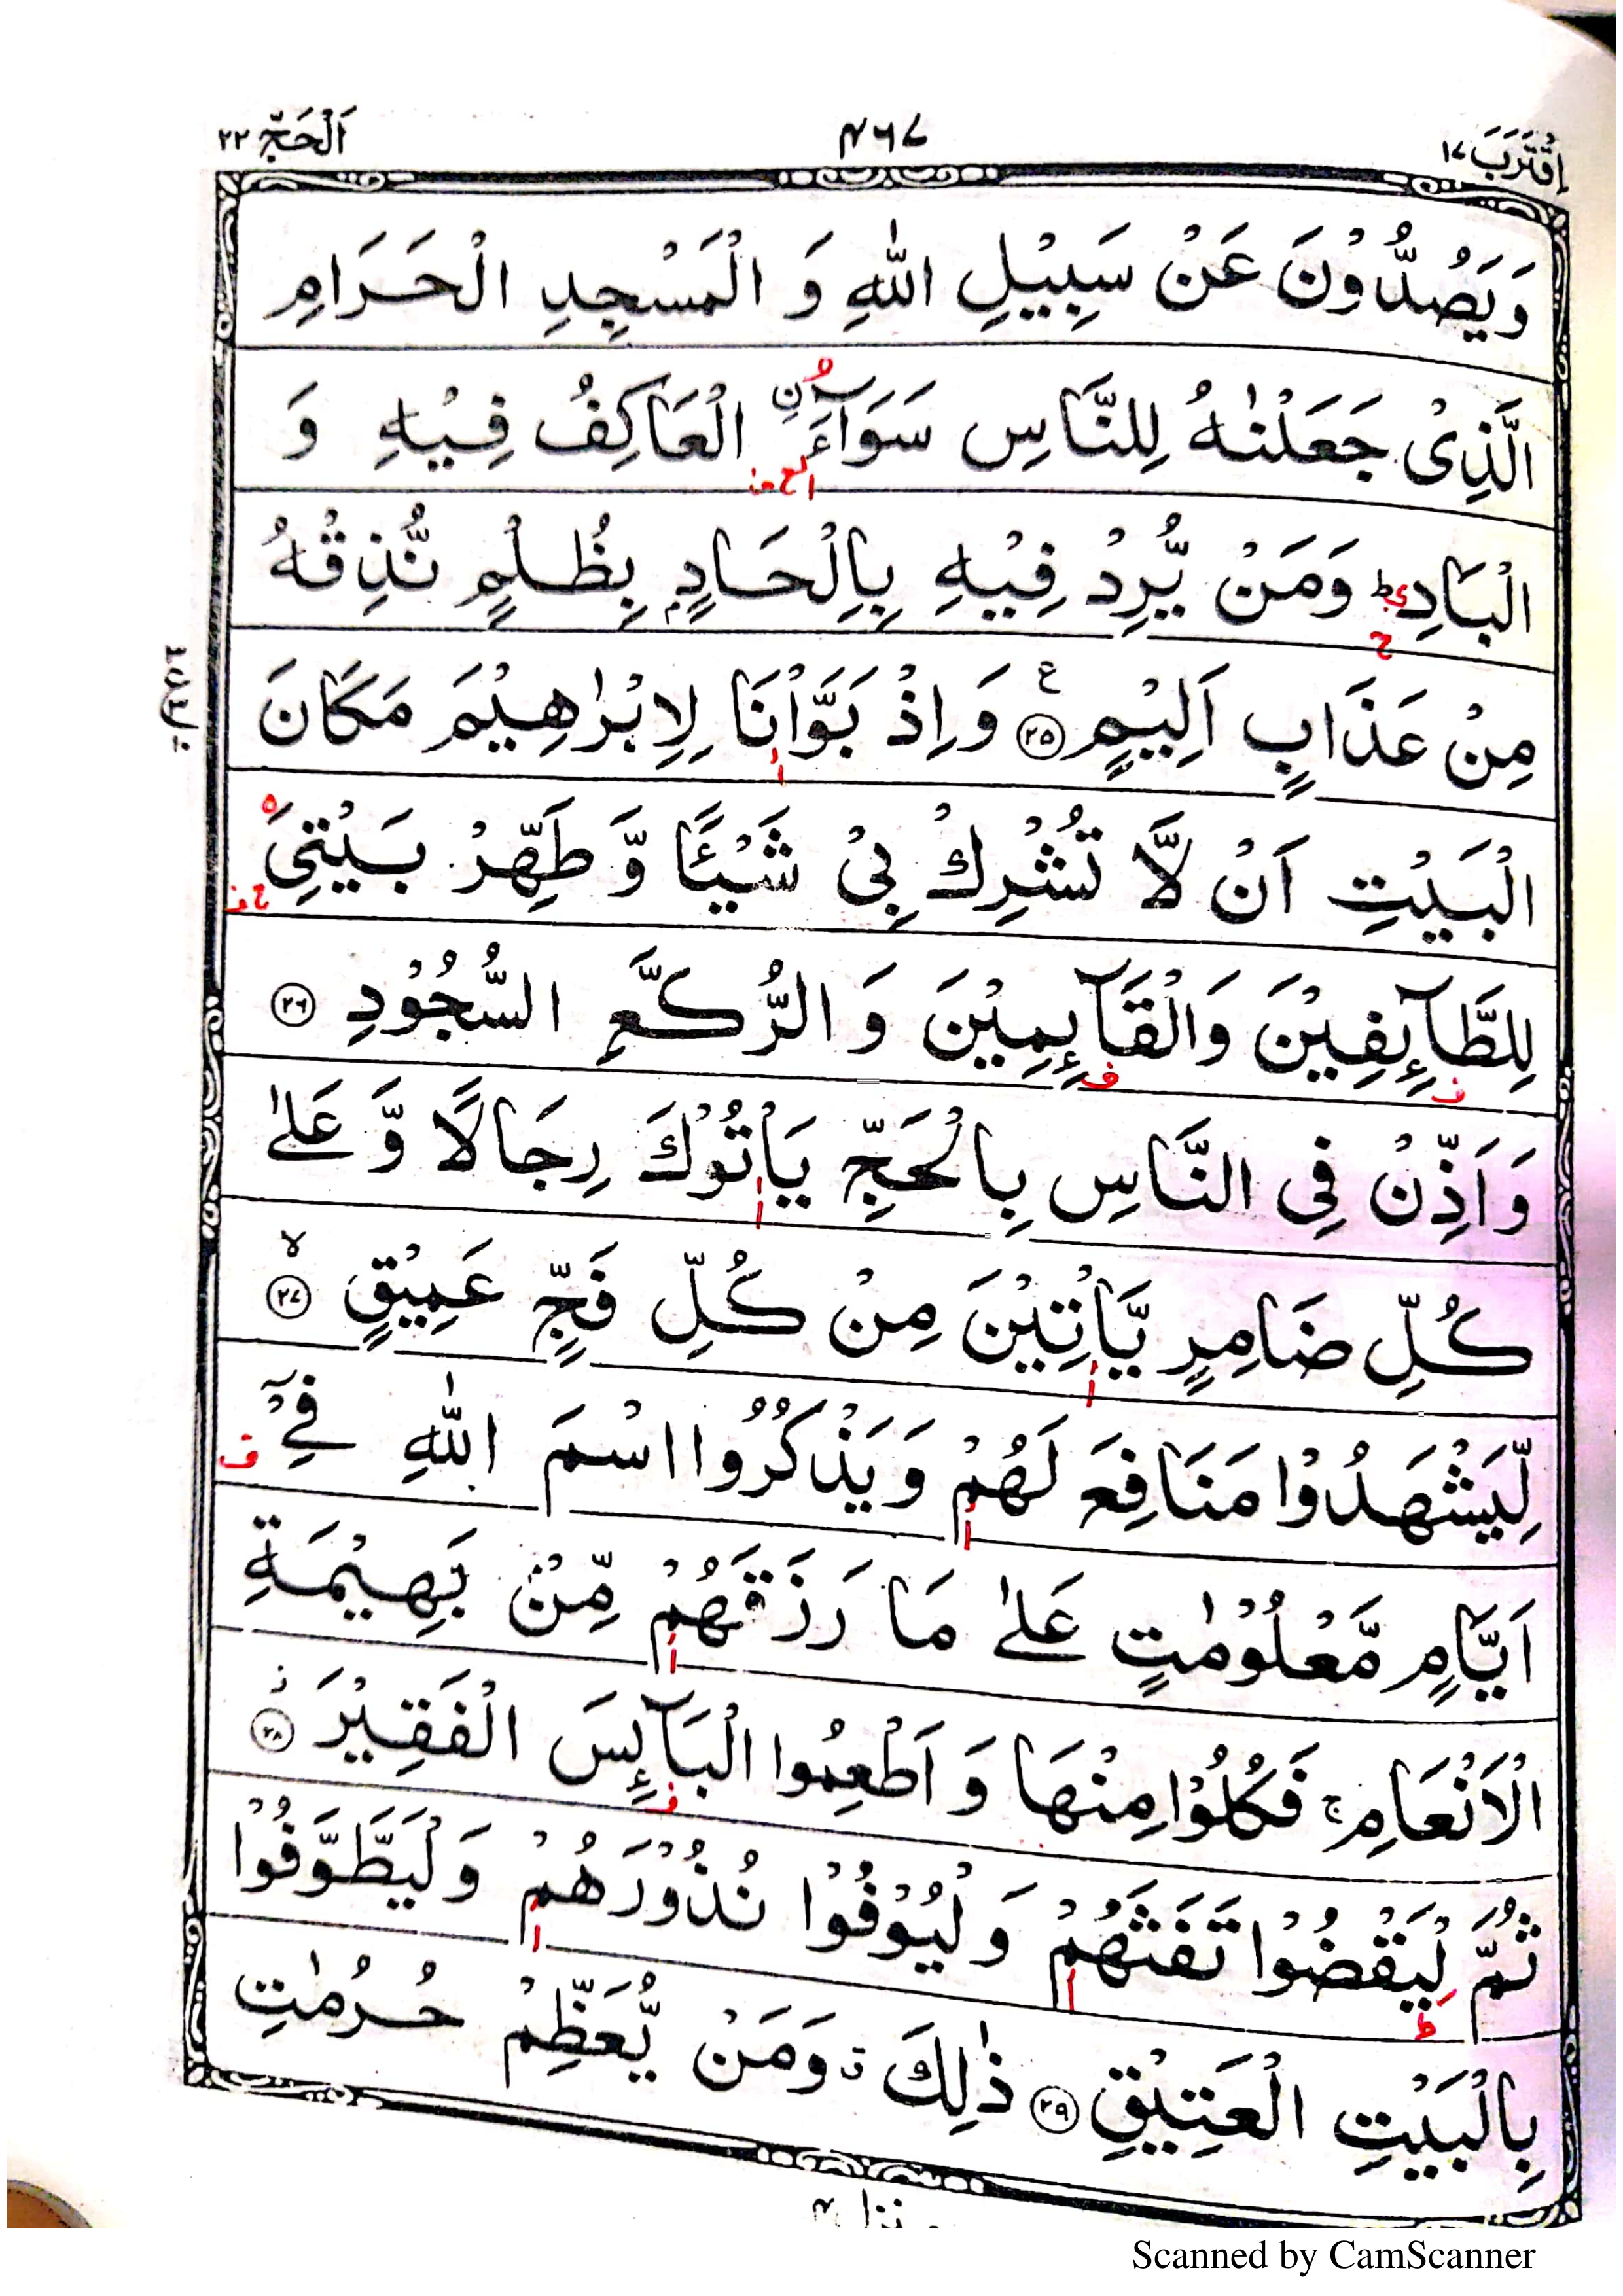 اِقْتَرَبَ ١٧ ۴۶۷ اَلْحَجّ ٢٢
وَيَصُدُّوْنَ عَنْ سَبِيْلِ اللّٰهِ وَ الْمَسْجِدِ الْحَرَامِ
الَّذِىْ جَعَلْنٰهُ لِلنَّاسِ سَوَآءَۨ الْعَاكِفُ فِيْهِ وَ
الْبَادِ ؕ وَمَنْ يُّرِدْ فِيْهِ بِاِلْحَادٍۭ بِظُلْمٍ نُّذِقْهُ
مِنْ عَذَابٍ اَلِيْمٍ ﴿٢٥﴾ ع وَ اِذْ بَوَّاْنَا لِاِبْرٰهِيْمَ مَكَانَ
الْبَيْتِ اَنْ لَّا تُشْرِكْ بِىْ شَيْـًٔا وَّ طَهِّرْ بَيْتِىَ
لِلطَّآئِفِيْنَ وَالْقَآئِمِيْنَ وَ الرُّكَّعِ السُّجُوْدِ ﴿٢٦﴾
وَ اَذِّنْ فِى النَّاسِ بِالْحَجِّ يَاْتُوْكَ رِجَالًا وَّ عَلٰى
كُلِّ ضَامِرٍ يَّاْتِيْنَ مِنْ كُلِّ فَجٍّ عَمِيْقٍ ﴿٢٧﴾ ۙ
لِّيَشْهَدُوْا مَنَافِعَ لَهُمْ وَيَذْكُرُوا اسْمَ اللّٰهِ فِىْۤ
اَيَّامٍ مَّعْلُوْمٰتٍ عَلٰى مَا رَزَقَهُمْ مِّنْۢ بَهِيْمَةِ
الْاَنْعَامِ ۚ فَكُلُوْا مِنْهَا وَ اَطْعِمُوا الْبَآئِسَ الْفَقِيْرَ ﴿٢٨﴾ ز
ثُمَّ لْيَقْضُوْا تَفَثَهُمْ وَ لْيُوْفُوْا نُذُوْرَهُمْ وَ لْيَطَّوَّفُوْا
بِالْبَيْتِ الْعَتِيْقِ ﴿٢٩﴾ ذٰلِكَ ۗ وَمَنْ يُّعَظِّمْ حُرُمٰتِ
Scanned by CamScanner